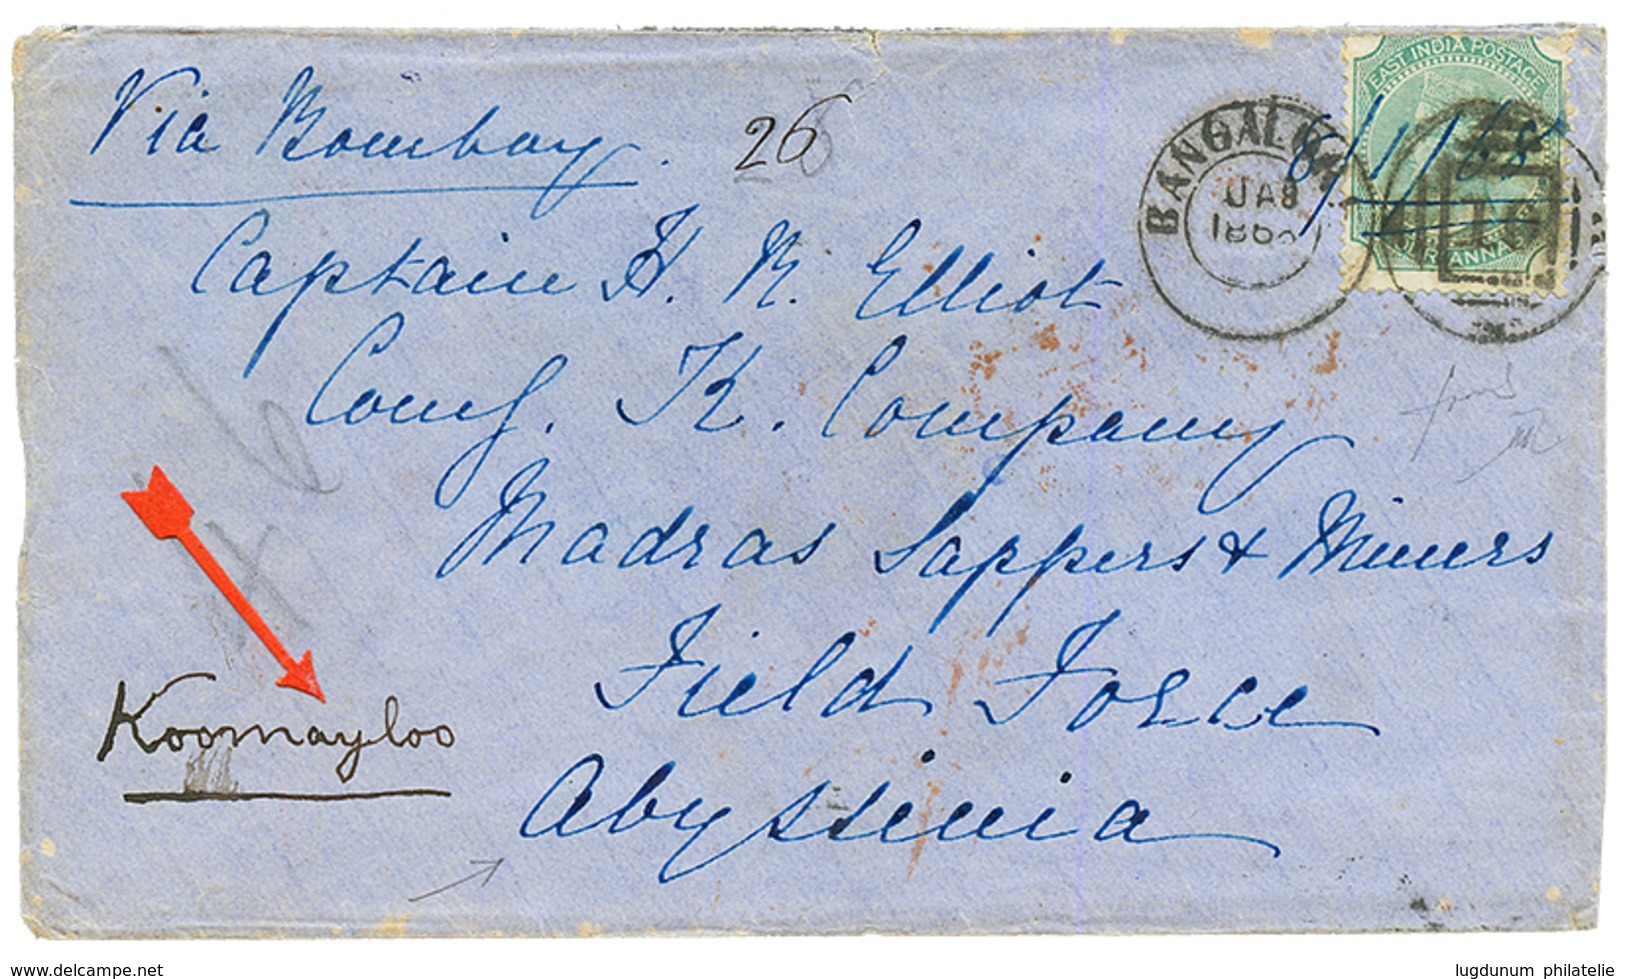 Via Bombay.
26
EAST INDIA POSTAGE
8/1/68
BANGALORE
JA 8
186
ANNA
Captain H. R. Elliot
Comg. K. Company
Madras Sappers & Miners
Field Force
Abyssinia
Koomayloo
www.delcampe.net
lugdunum philatelie